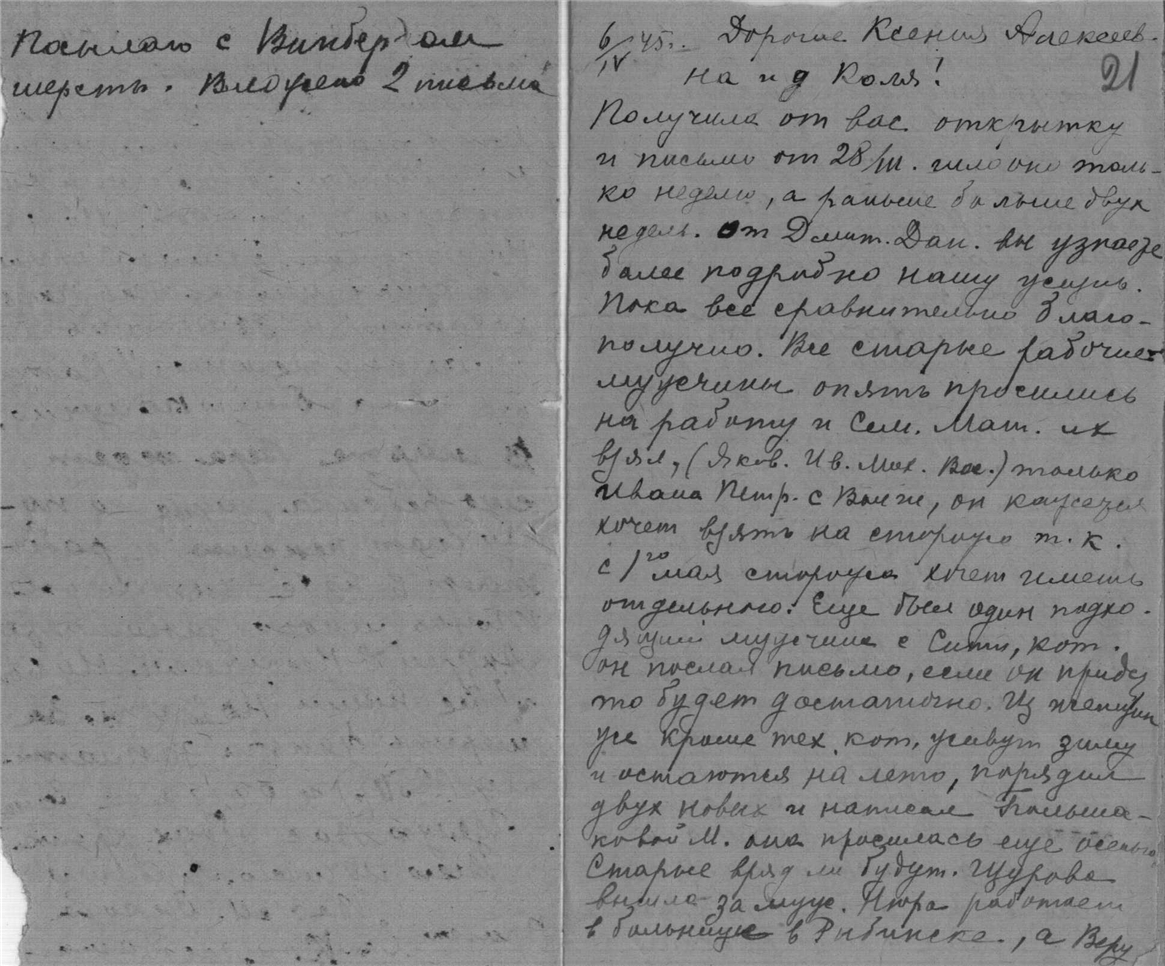 Посылаю с Винбергом
шерсть. Вложено 2 письма
6/IV 45г. Дорогие Ксения Алексеев-
на и д Коля!
21
Получила от вас открытку
и письмо от 28/III. шло оно толь-
ко неделю, а раньше больше двух
недель. От Дмит. Дан. вы узнаете
более подробно нашу жизнь.
Пока все сравнительно благо-
получно. Все старые рабочие
мужчины опять просились
на работу и Сем. Мат. их
взял, (Яков. Ив. Мих. Вас.) только
Ивана Петр. с Волги, он кажется
хочет взять на сторожа т. к.
с 1го мая сторожа хочет иметь
отдельного. Еще был один подхо-
дящий мужчина с Сити, кот.
он послал письмо, если он придет
то будет достаточно. Из женщин
уже кроме тех, кот. живут зиму
и остаются на лето, порядил
двух новых и написал Больша-
ковой М. она просилась еще осенью
Старые вряд ли будут. Щурова
вышла замуж. Нюра работает
в больнице в Рыбинске, а Веру